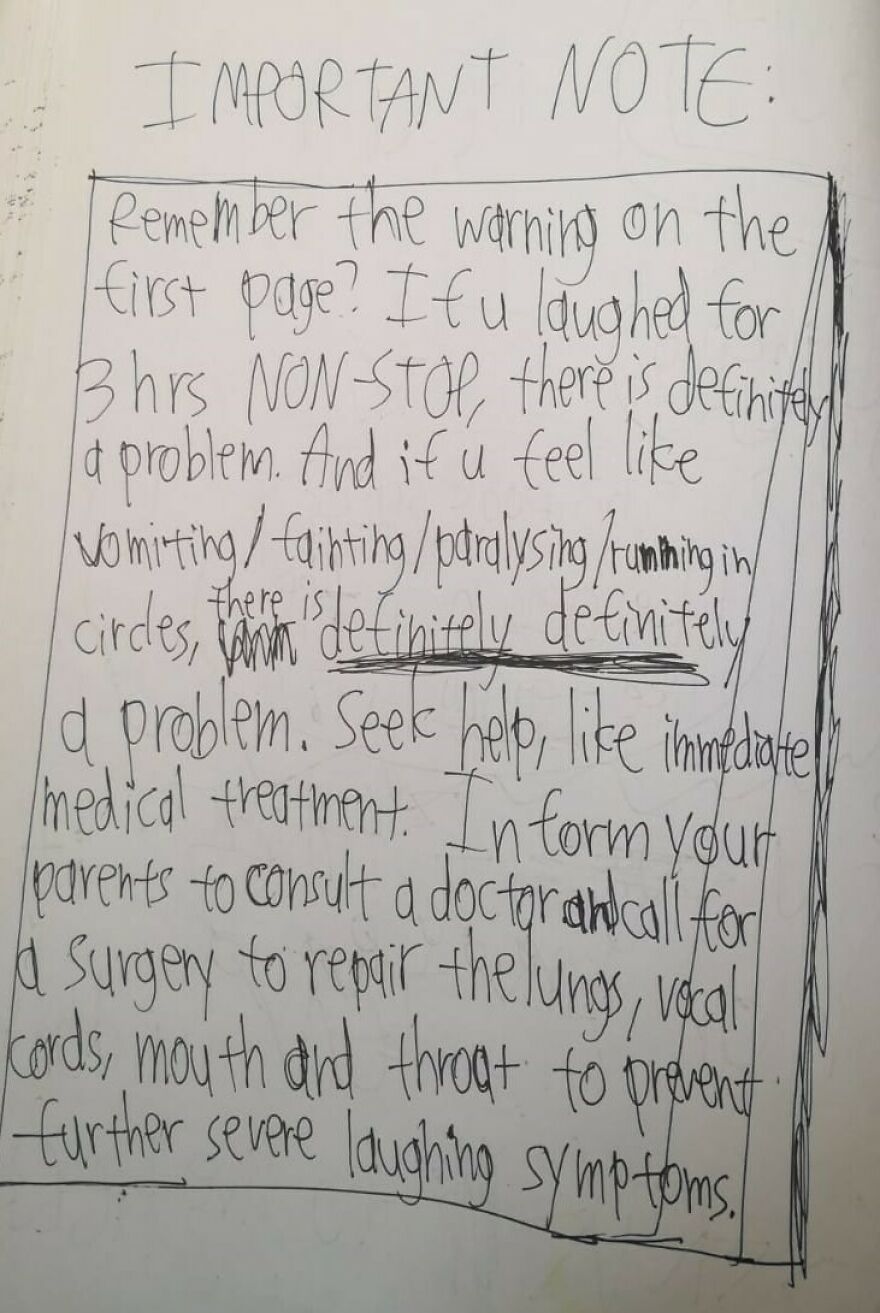 IMPORTANT NOTE:
Remember the warning on the
first page? If u laughed for
3 hrs NON-STOP, there is definitely
a problem. And if u feel like
vomiting/fainting/paralysing/running in
circles, there is definitely definitely
a problem. Seek help, like immediate
medical treatment. Inform your
parents to consult a doctor and call for
a surgery to repair the lungs, vocal
cords, mouth and throat to prevent
further severe laughing symptoms.